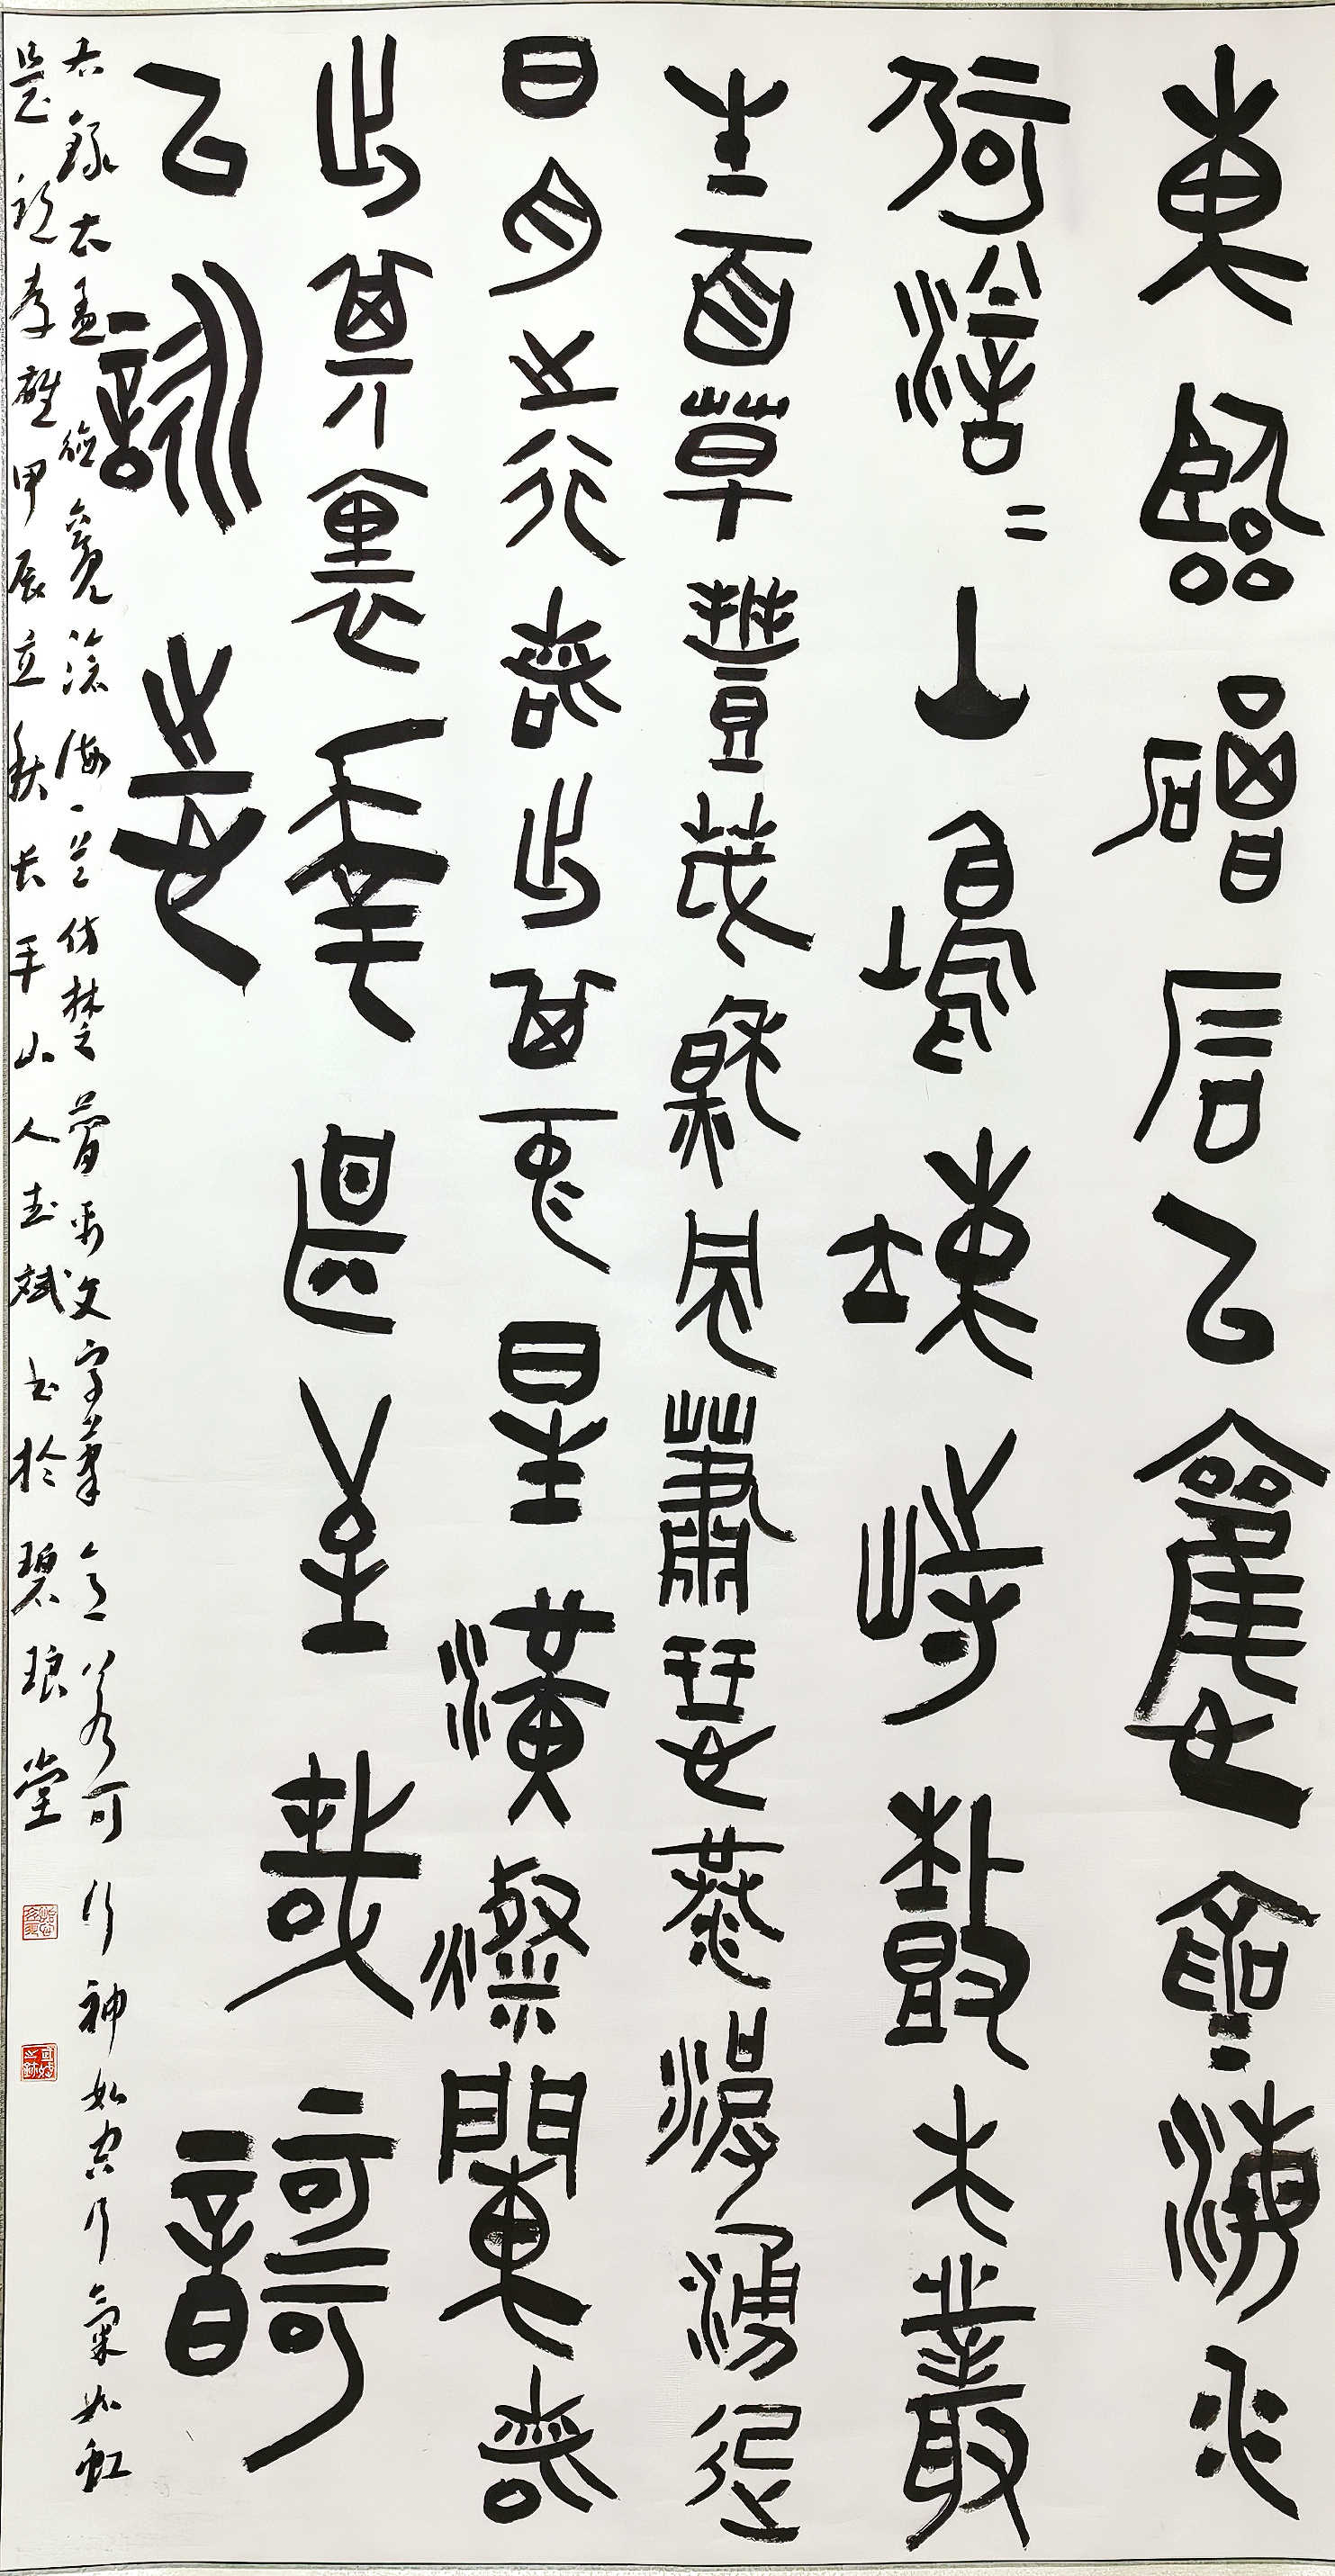 東臨碣石以觀滄海水
何澹〻山島竦峙樹木叢
生百草豐茂秋風蕭瑟洪波湧起
日月之行若出其中星漢燦爛若
出其裏幸甚至哉歌
以詠志
右錄孟德觀滄海一首仿楚簡帛文字筆意若可行神如空行氣如虹
是甲辰立秋長平山人志斌書於碧琅堂